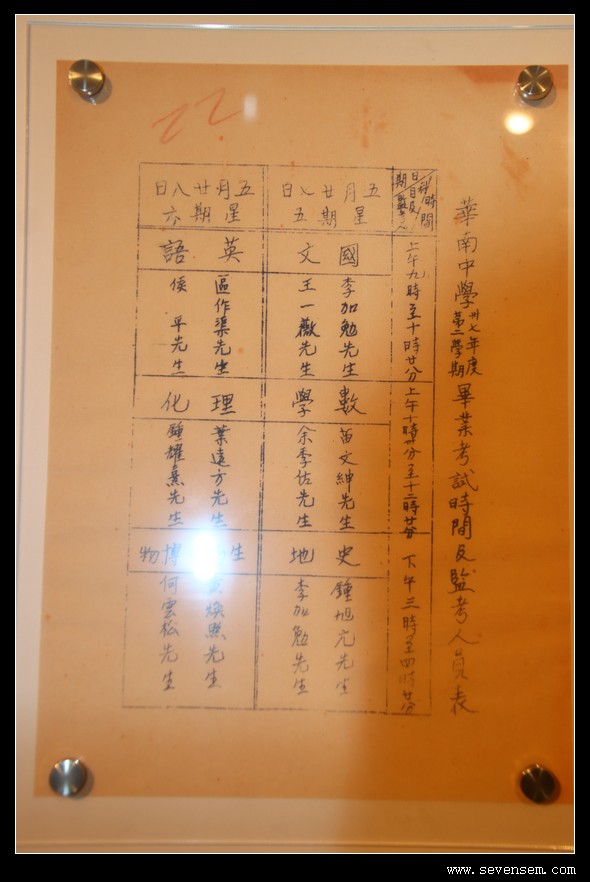 華南中學卅七年度第二學期畢業考試時間及監考人員表
時間
上午九時至十時廿分
上午十時卅分至十二時廿分
下午三時至四時廿分
五月廿八日
星期五
國文
李加勉先生
王一薇先生
數學
苗文紳先生
余季佑先生
史地
鍾旭元先生
李加勉先生
五月廿八日
星期六
英語
區作渠先生
侯平先生
理化
葉遠方先生
鍾耀熹先生
生
博物
煥熙先生
何雲松先生
www.sevensem.com